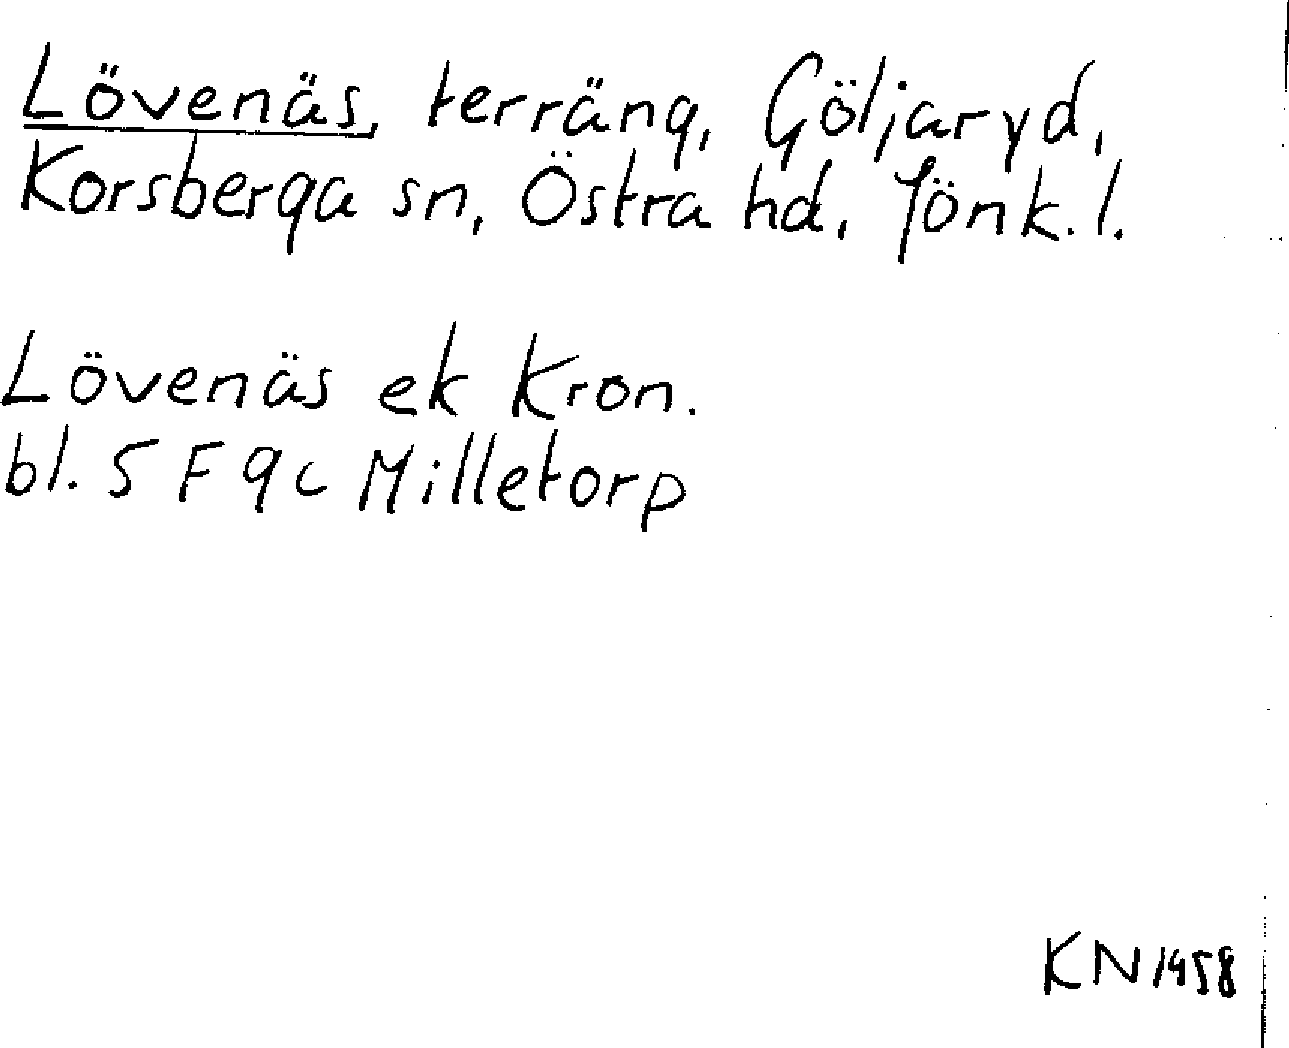 Lövenäs, terräng, Göljaryd,
Korsberga sn, Östra hd, Jönk. l.
Lövenäs ek Kron.
bl. 5 F 9c Milletorp
KN 1958